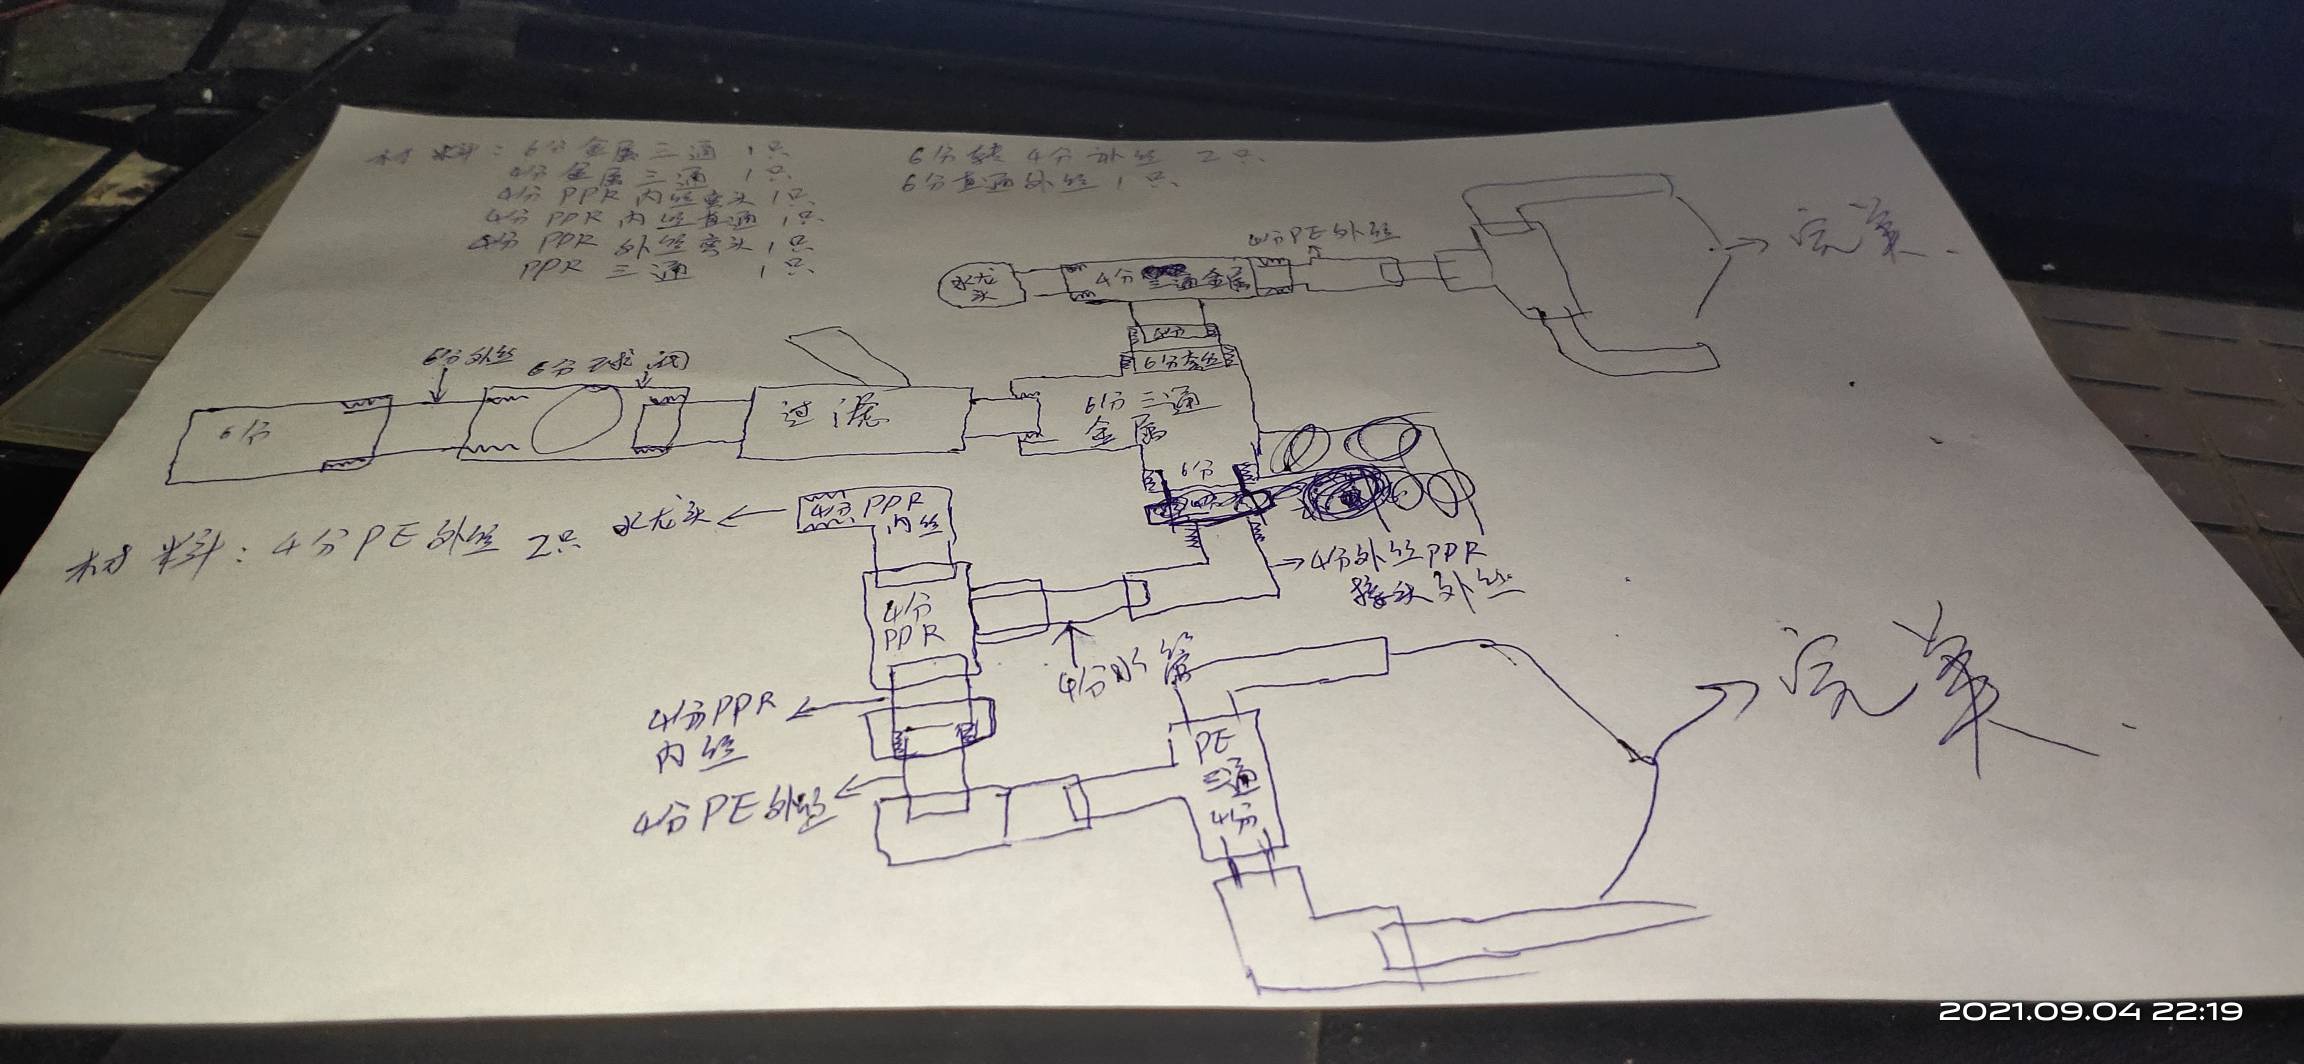 材料：6分金属三通 1只
4分金属三通 1只
4分PPR 内丝弯头 1只
4分PPR 内丝直通 1只
4分PPR 外丝弯头 1只
PPR 三通 1只
6分转4分补丝 2只
6分直通外丝 1只
4分PE外丝
水龙头
4分三通金属
完美.
4分
6分外丝
6分球阀
6分
过滤
6分三通
金属
6分
水龙头
4分PPR
内丝
材料：4分PE外丝 2只
4分外丝PPR
接头外丝
4分
PPR
4分水管
4分PPR
内丝
4分PE外丝
PE
三通
4分
完美.
2021.09.04 22:19